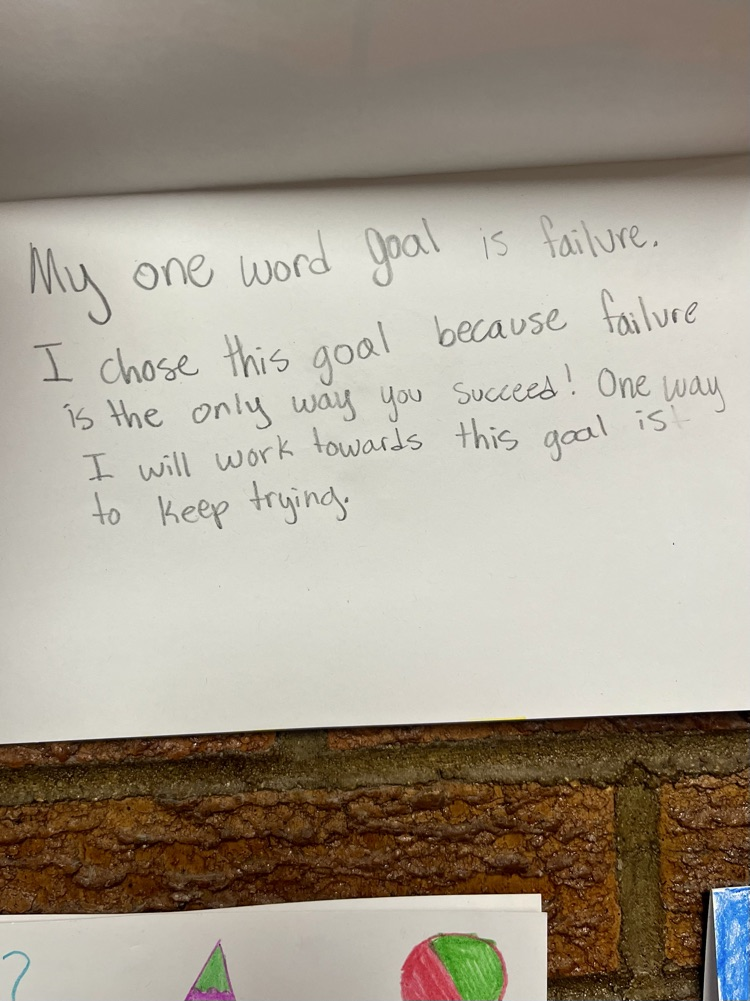 My one word goal is failure.
I chose this goal because failure
is the only way you succeed! One way
I will work towards this goal is
to keep trying.
?